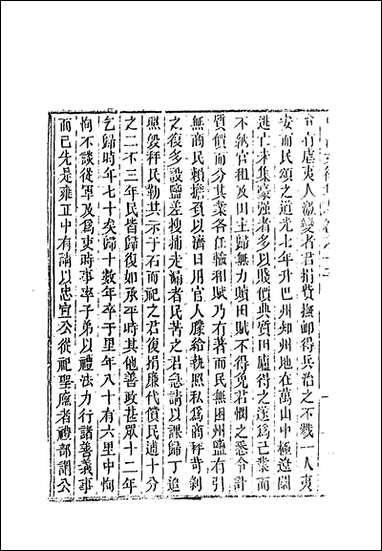 官有虐夷人激變者君捐費撫卹得兵治之不戮一人夷
安而民頌之道光七年升巴州知州地在萬山中極遼闊
逃亡未集豪強者多以賤價典質田廬得之遂爲己業而
不執官租及田主歸無力贖田賦不得免君憫之悉令計
質價而分其業各任租賦乃有著而民無困州鹽有引
無商民賴擔負以濟日用官人牒給執照私爲商秤苛剝
之復多設鹽差搜捕走漏者民苦之君急請以課歸丁追
照毀秤民勒其示于石而祀之君復捐廉代償民逋十分
之二不三年民皆歸復如承平時其他善政甚眾十二年
乞歸時年七十矣歸十數年卒于里年八十有六里中恂
恂不談從軍及爲吏時事率子弟以禮法力行諸善義事
而已先是雍正中有請以忠宣公從祀聖廡者禮部謂公